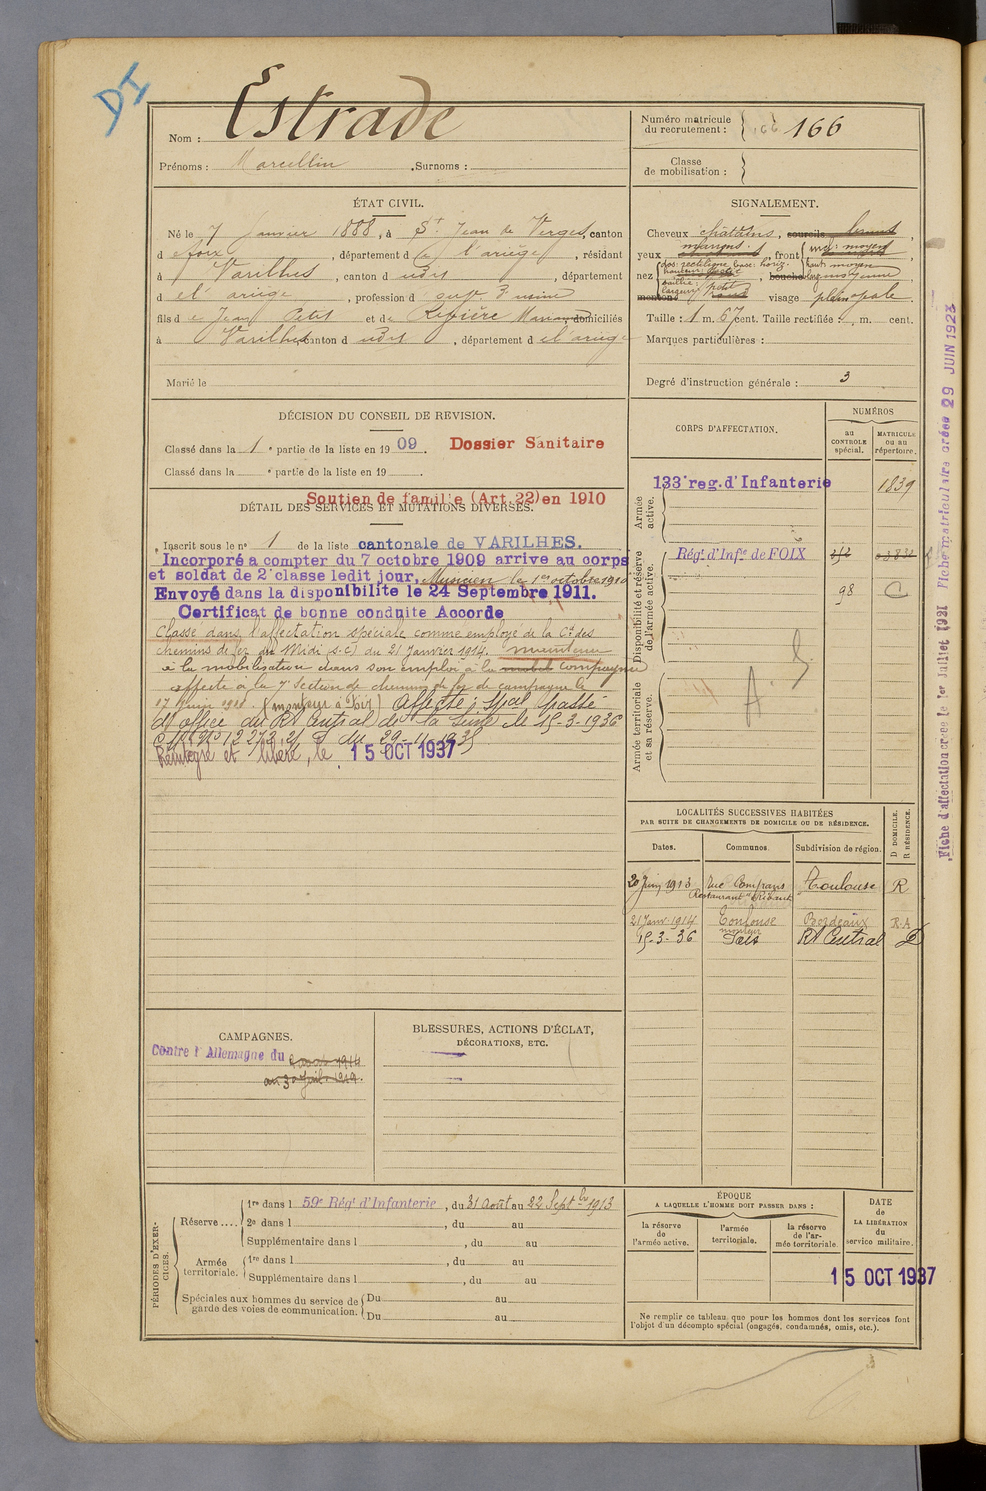 DI
Nom : Estrade
Prénoms : Marcellin . Surnoms :
Numéro matricule du recrutement : 166 166
Classe de mobilisation :
ÉTAT CIVIL.
Né le 7 Janvier 1888, à St Jean de Verges, canton
d e foix, département d e l'ariège, résidant
à Varilhes, canton d udit, département
d e l'ariège, profession d
fils d e Jean Petit et de Rivière domiciliés
à Varilhes, canton d udit, département d e l'ariège
Marié le
SIGNALEMENT.
Cheveux châtains, sourcils bruns,
yeux marrons, front incl: moyen
haut: moyen
larg: moyenne
nez dos: rectiligne base: horiz.
hauteur:
saillie: petit
largeur:
bouche
menton rond visage plein ovale.
Taille : 1 m. 67 cent. Taille rectifiée : , m. cent.
Marques particulières :
Degré d'instruction générale : 3
DÉCISION DU CONSEIL DE REVISION.
Classé dans la 1e partie de la liste en 1909. Dossier Sanitaire
Classé dans la e partie de la liste en 19 .
Soutien de famille (Art. 22) en 1910
DÉTAIL DES SERVICES ET MUTATIONS DIVERSES.
Inscrit sous le no 1 de la liste cantonale de VARILHES.
Incorporé a compter du 7 octobre 1909 arrive au corps
et soldat de 2e classe ledit jour, Musicien le 1er octobre 1910
Envoyé dans la disponibilite le 24 Septembre 1911.
Certificat de bonne conduite Accorde
Classé dans l'affectation spéciale comme employé de la Cie des
chemins de fer du Midi (S.C) du 21 Janvier 1914. maintenu
à la mobilisation dans son emploi à la mobil compagnie
affecté à la 7e Section de chemins de fer de campagne le
17 Juin 1918 (monteur à Foix) Affecté spal passé
d'office du Rt Central de la Seine le 15-3-1936
du 29-11-1935
Réintégré et libéré, le 15 OCT 1937
CORPS D'AFFECTATION.
NUMÉROS
au CONTROLE spécial.
MATRICULE ou au répertoire.
Armée active.
133e reg. d'Infanterie 1839
Disponibilité et réserve de l'armée active.
Régt d'Infie de FOIX
98 C
Armée territoriale et sa réserve.
A S.
LOCALITÉS SUCCESSIVES HABITÉES
PAR SUITE DE CHANGEMENTS DE DOMICILE OU DE RÉSIDENCE.
Dates. Communes. Subdivision de région. D DOMICILE. R RÉSIDENCE.
20 Juin 1913 rue Compans Toulouse R
Restaurant
21 Janv. 1914 Toulouse Bordeaux R.A
monteur
15-3-36 Rt Central
CAMPAGNES.
Contre l'Allemagne du
BLESSURES, ACTIONS D'ÉCLAT,
DÉCORATIONS, ETC.
PÉRIODES D'EXERCICES.
Réserve .... 1re dans l 59e Régt d'Infanterie, du 31 Août au 22 Septbre 1913
2e dans l , du au
Supplémentaire dans l , du au
Armée territoriale. 1re dans l , du au
Supplémentaire dans l , du au
Spéciales aux hommes du service de garde des voies de communication. Du au
Du au
ÉPOQUE
A LAQUELLE L'HOMME DOIT PASSER DANS :
la réserve de l'armée active.
l'armée territoriale.
la réserve de l'armée territoriale.
DATE de LA LIBÉRATION du service militaire.
15 OCT 1937
Ne remplir ce tableau que pour les hommes dont les services font
l'objet d'un décompte spécial (engagés, condamnés, omis, etc.).
Fiche d'affectation créée le 1er Juillet 1921 Fiche matriculaire créée 29 JUIN 1923